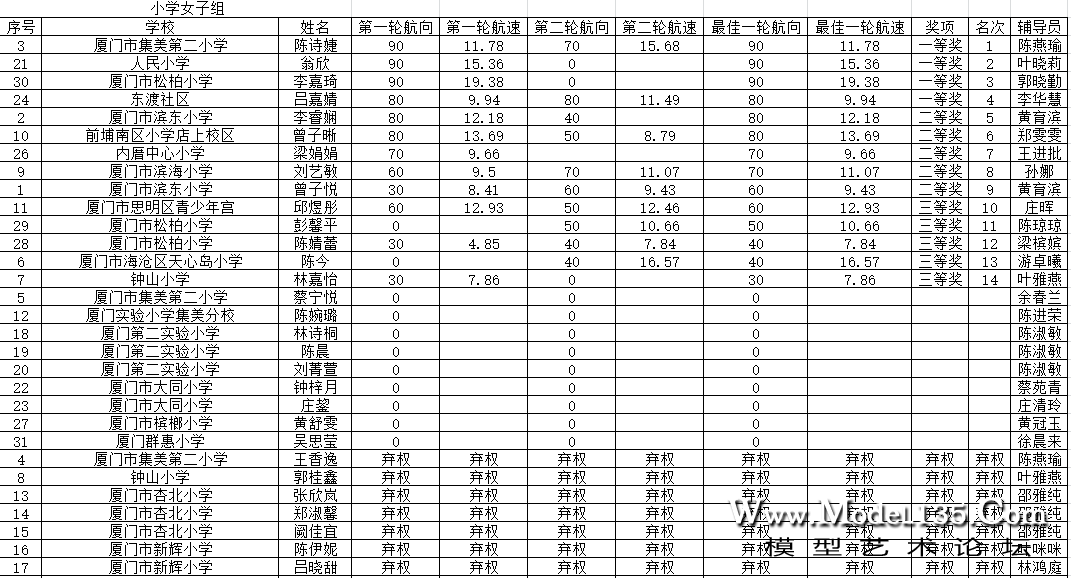 小学女子组
序号 学校 姓名 第一轮航向 第一轮航速 第二轮航向 第二轮航速 最佳一轮航向 最佳一轮航速 奖项 名次 辅导员
3 厦门市集美第二小学 陈诗婕 90 11.78 70 15.68 90 11.78 一等奖 1 陈燕瑜
21 人民小学 翁欣 90 15.36 0 90 15.36 一等奖 2 叶晓莉
30 厦门市松柏小学 李嘉琦 90 19.38 0 90 19.38 一等奖 3 郭晓勤
24 东渡社区 吕嘉婧 80 9.94 80 11.49 80 9.94 一等奖 4 李华慧
2 厦门市滨东小学 李睿娴 80 12.18 40 80 12.18 二等奖 5 黄育滨
10 前埔南区小学店上校区 曾子晰 80 13.69 50 8.79 80 13.69 二等奖 6 郑雯雯
26 内厝中心小学 梁娟娟 70 9.66 70 9.66 二等奖 7 王进批
9 厦门市滨海小学 刘艺敏 60 9.5 70 11.07 70 11.07 二等奖 8 孙娜
1 厦门市滨东小学 曾子悦 30 8.41 60 9.43 60 9.43 二等奖 9 黄育滨
11 厦门市思明区青少年宫 邱煜彤 60 12.93 50 12.46 60 12.93 三等奖 10 庄晖
29 厦门市松柏小学 彭馨平 0 50 10.66 50 10.66 三等奖 11 陈琼琼
28 厦门市松柏小学 陈婧蕾 30 4.85 40 7.84 40 7.84 三等奖 12 梁槟嫔
6 厦门市海沧区天心岛小学 陈今 0 40 16.57 40 16.57 三等奖 13 游卓曦
7 钟山小学 林嘉怡 30 7.86 0 30 7.86 三等奖 14 叶雅燕
5 厦门市集美第二小学 蔡宁悦 0 0 0 余春兰
12 厦门实验小学集美分校 陈婉璐 0 0 0 陈进荣
18 厦门第二实验小学 林诗桐 0 0 0 陈淑敏
19 厦门第二实验小学 陈晨 0 0 0 陈淑敏
20 厦门第二实验小学 刘菁萱 0 0 0 陈淑敏
22 厦门市大同小学 钟梓月 0 0 0 蔡苑青
23 厦门市大同小学 庄鋆 0 0 0 庄清玲
27 厦门市槟榔小学 黄舒雯 0 0 0 黄冠玉
31 厦门群惠小学 吴思莹 0 0 0 徐晨来
4 厦门市集美第二小学 王香逸 弃权 弃权 弃权 弃权 弃权 弃权 弃权 弃权 陈燕瑜
8 钟山小学 郭桂鑫 弃权 弃权 弃权 弃权 弃权 弃权 弃权 弃权 叶雅燕
13 厦门市杏北小学 张欣岚 弃权 弃权 弃权 弃权 弃权 弃权 弃权 弃权 邵雅纯
14 厦门市杏北小学 郑淑馨 弃权 弃权 弃权 弃权 弃权 弃权 弃权 弃权 邵雅纯
15 厦门市杏北小学 阙佳宜 弃权 弃权 弃权 弃权 弃权 弃权 弃权 弃权 邵雅纯
16 厦门市新辉小学 陈伊妮 弃权 弃权 弃权 弃权 弃权 弃权 弃权 弃权 咪咪
17 厦门市新辉小学 吕晓甜 弃权 弃权 弃权 弃权 弃权 弃权 弃权 弃权 林鸿庭
Www.Model135.Com
模型艺术论坛